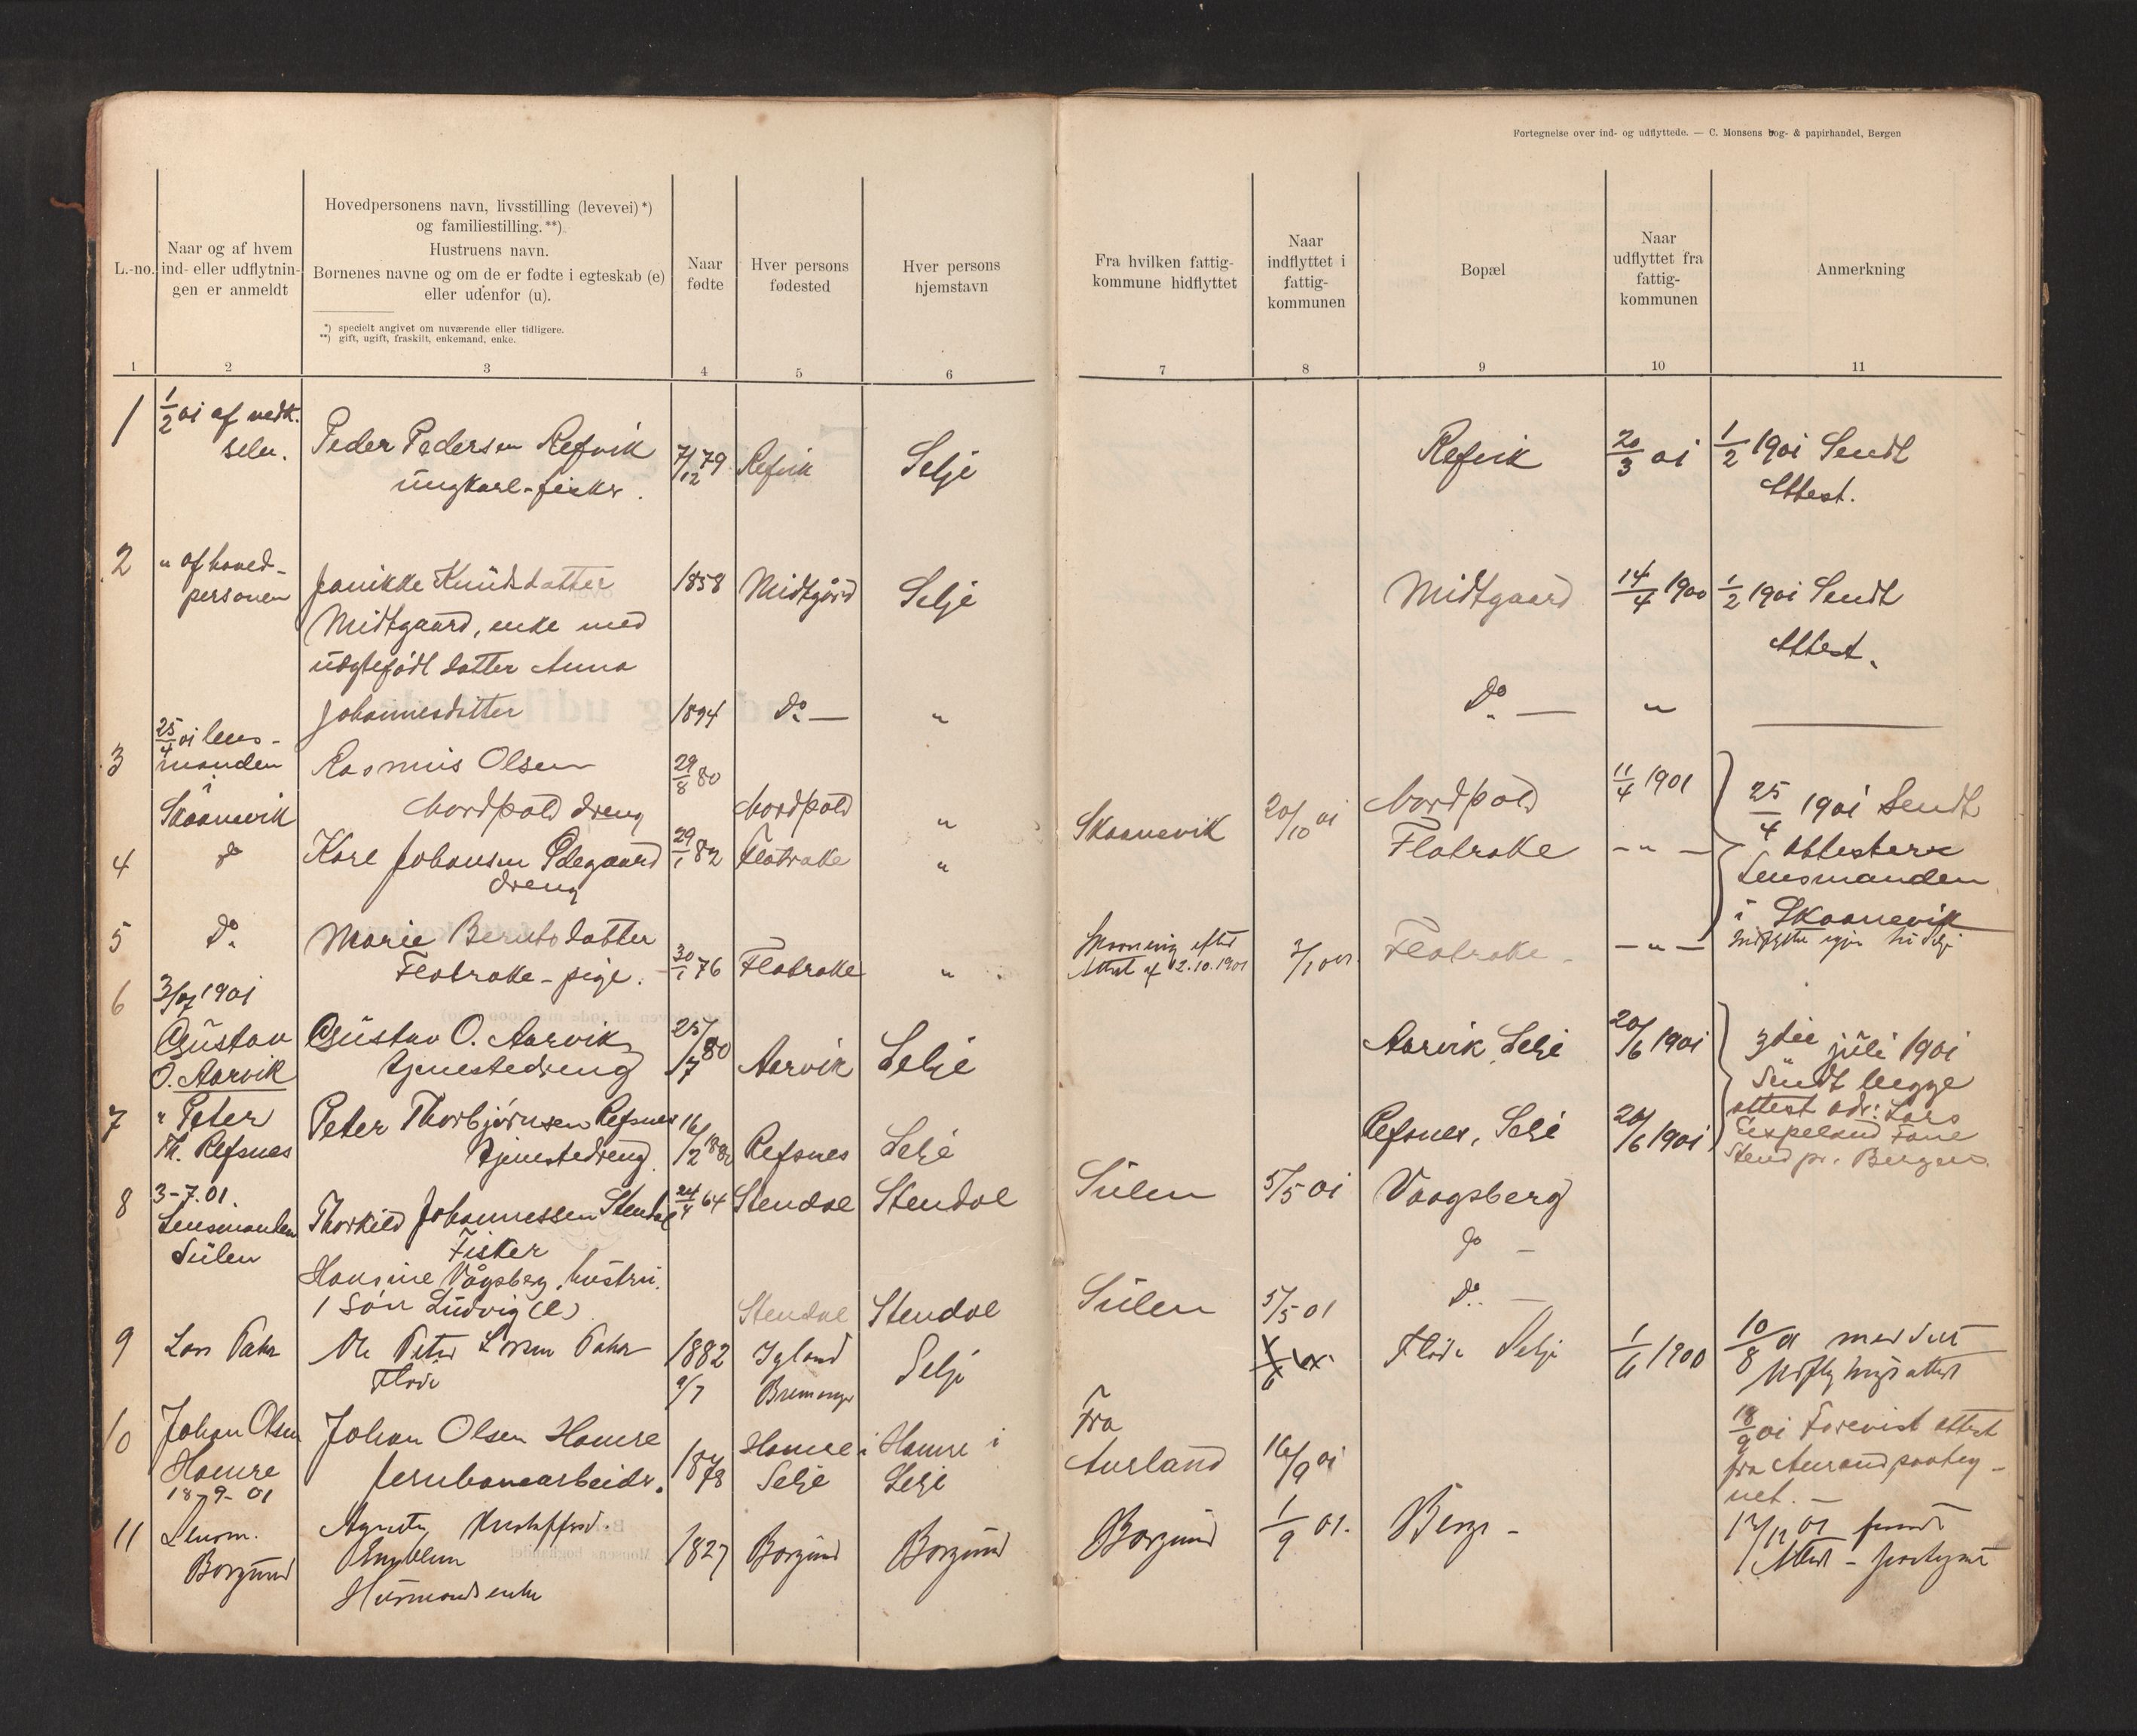 Fortegnelse over ind- og udflyttede. — C. Monsens bog- & papirhandel, Bergen
L.-no.
Naar og af hvem
ind- eller udflytnin-
gen er anmeldt
Hovedpersonens navn, livsstilling (levevei) *)
og familiestilling. **)
Hustruens navn.
Børnenes navne og om de er fødte i egteskab (e)
eller udenfor (u).
*) specielt angivet om nuværende eller tidligere.
**) gift, ugift, fraskilt, enkemand, enke.
Naar
fødte
Hver persons
fødested
Hver persons
hjemstavn
Fra hvilken fattig-
kommune hidflyttet
Naar
indflyttet i
fattig-
kommunen
Bopæl
Naar
udflyttet fra
fattig-
kommunen
Anmerkning
1 2 3 4 5 6 7 8 9 10 11
1
1/2 01 af vedk.
selv.
Peder Pedersen Refvik
ungkarl-fisker.
7/12 79
Refvik
Selje
Refvik
20/3 01
1/2 1901 Sendt
Attest.
2
" af hoved-
personen
Janikke Knudsdatter
Midtgaard, enke med
uægtefødt datter Anna
Johannesdatter
1858
Midtgård
Selje
Midtgaard
14/4 1900
1/2 1901 Sendt
Attest.
1894
Do —
"
Do —
"
3
25/4 01 lens-
manden
i
Skaanevik
Rasmus Olsen
Nordpold dreng
29/8 80
Nordpold
"
Skaanevik
20/10 01
Nordpold
11/4 1901
25/4 1901 Sendt
Attester
Lensmanden
i Skaanevik
4
do
Karl Johansen Ødegaard
dreng
29/1 82
Flatrake
"
Flatrake
— " —
5
Do
Marie Berntsdatter
Flatrake - pige.
30/1 76
Flatrake
"
efter
Attest af 12.10.1901
Flatrake -
— " —
Indflyttet igjen til Selje
6
3/07 1901
Gustav
O. Aarvik
Gustav O. Aarvik
tjenestedreng
25/7 80
Aarvik
Selje
Aarvik, Selje
20/6 1901
3die juli 1901
Sendt begge
attest adr: Lars
Fane
Stend pr. Bergen.
7
" Peter
Th. Refsnes
Peter Thorbjørnsen Refsnes
tjenestedreng
16/2 1880
Refsnes
Selje
Refsnes, Selje
20/6 1901
8
3-7.01.
Lensmanden
Sulen
Thorkild Johannessen Stendal
Fisker
Hansine Vågsberg, hustru.
1 Søn Ludvig (e)
24/4 64
Stendal
Stendal
Sulen
5/5 01
Vaagsberg
do —
Stendal
Stendal
Sulen
5/5 01
Do. —
9
Lars Pahr
Ole Peter Larsen Pahr
Flode
1882
9/7
Igland
Bremanger
Selje
Flode Selje
1/6 1900
10/8 01 meddelt
Udflytningsattest
10
Johan Olsen
Hamre
18-9-01
Johan Olsen Hamre
jernbanearbeider.
1878
Hamre i
Selje
Hamre i
Selje
Fra
Aurland
16/9 01
18/9 01 Forevist attest
fra Aurland paateg-
net. —
11
Lensm.
Borgund
Husmandsenke
1827
Borgund
Borgund
Borgund
1/9 01.
Berge -
12/12 01 sendt
Attest - paategnet